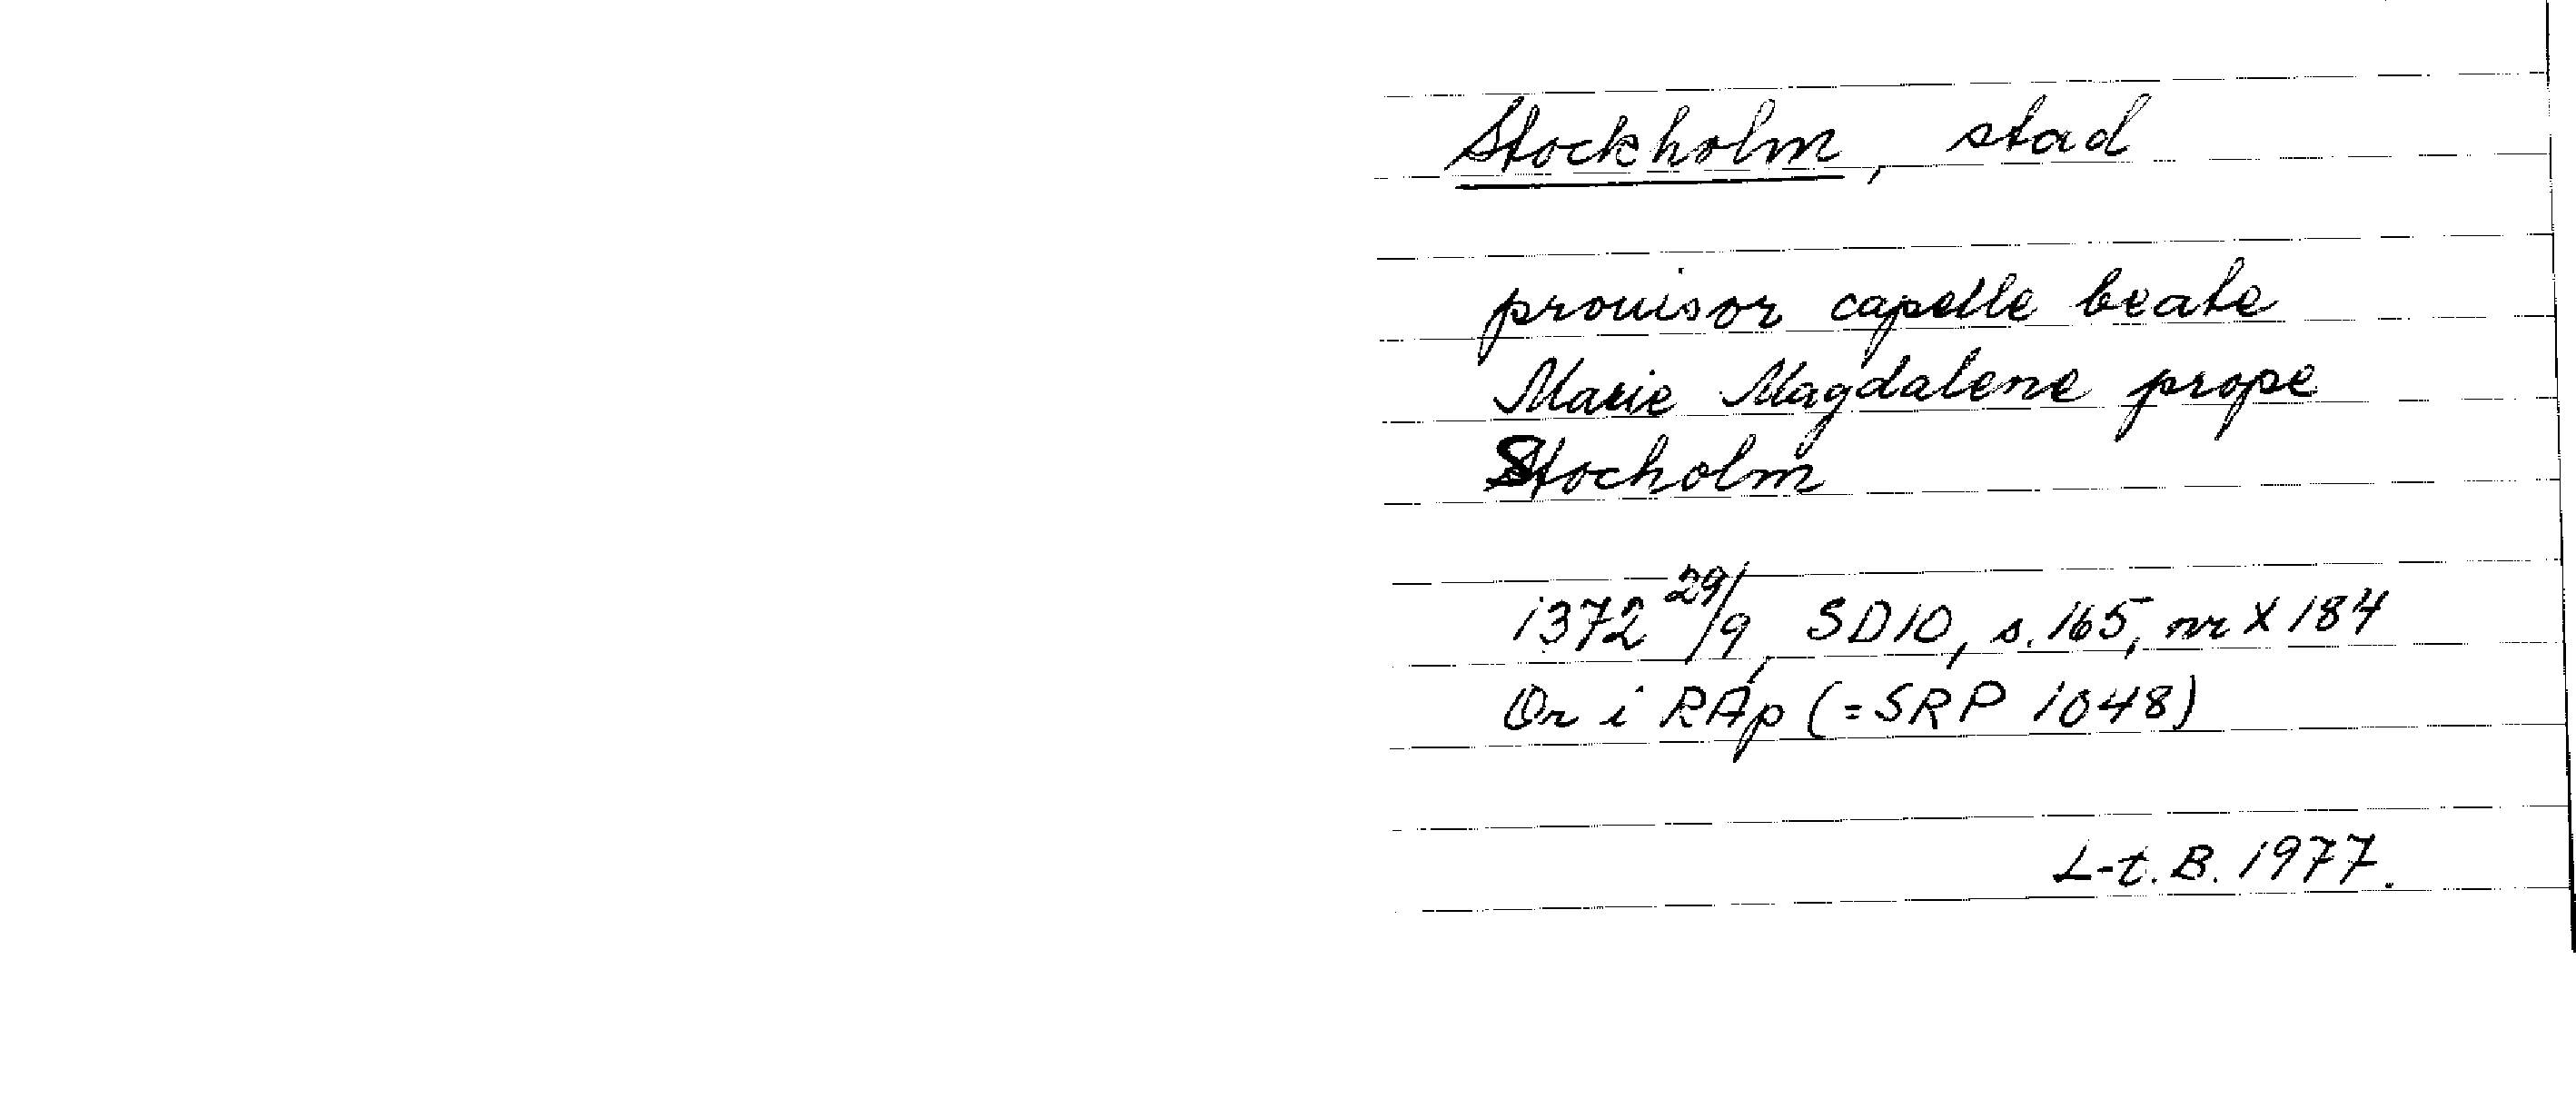 Stockholm, stad
prouisor capelle beate
Marie Magdalene prope
Stocholm
1372 29/9, SD10, s. 165, nr X 184
Or i RAp (=SRP 1048)
L-t. B. 1977.